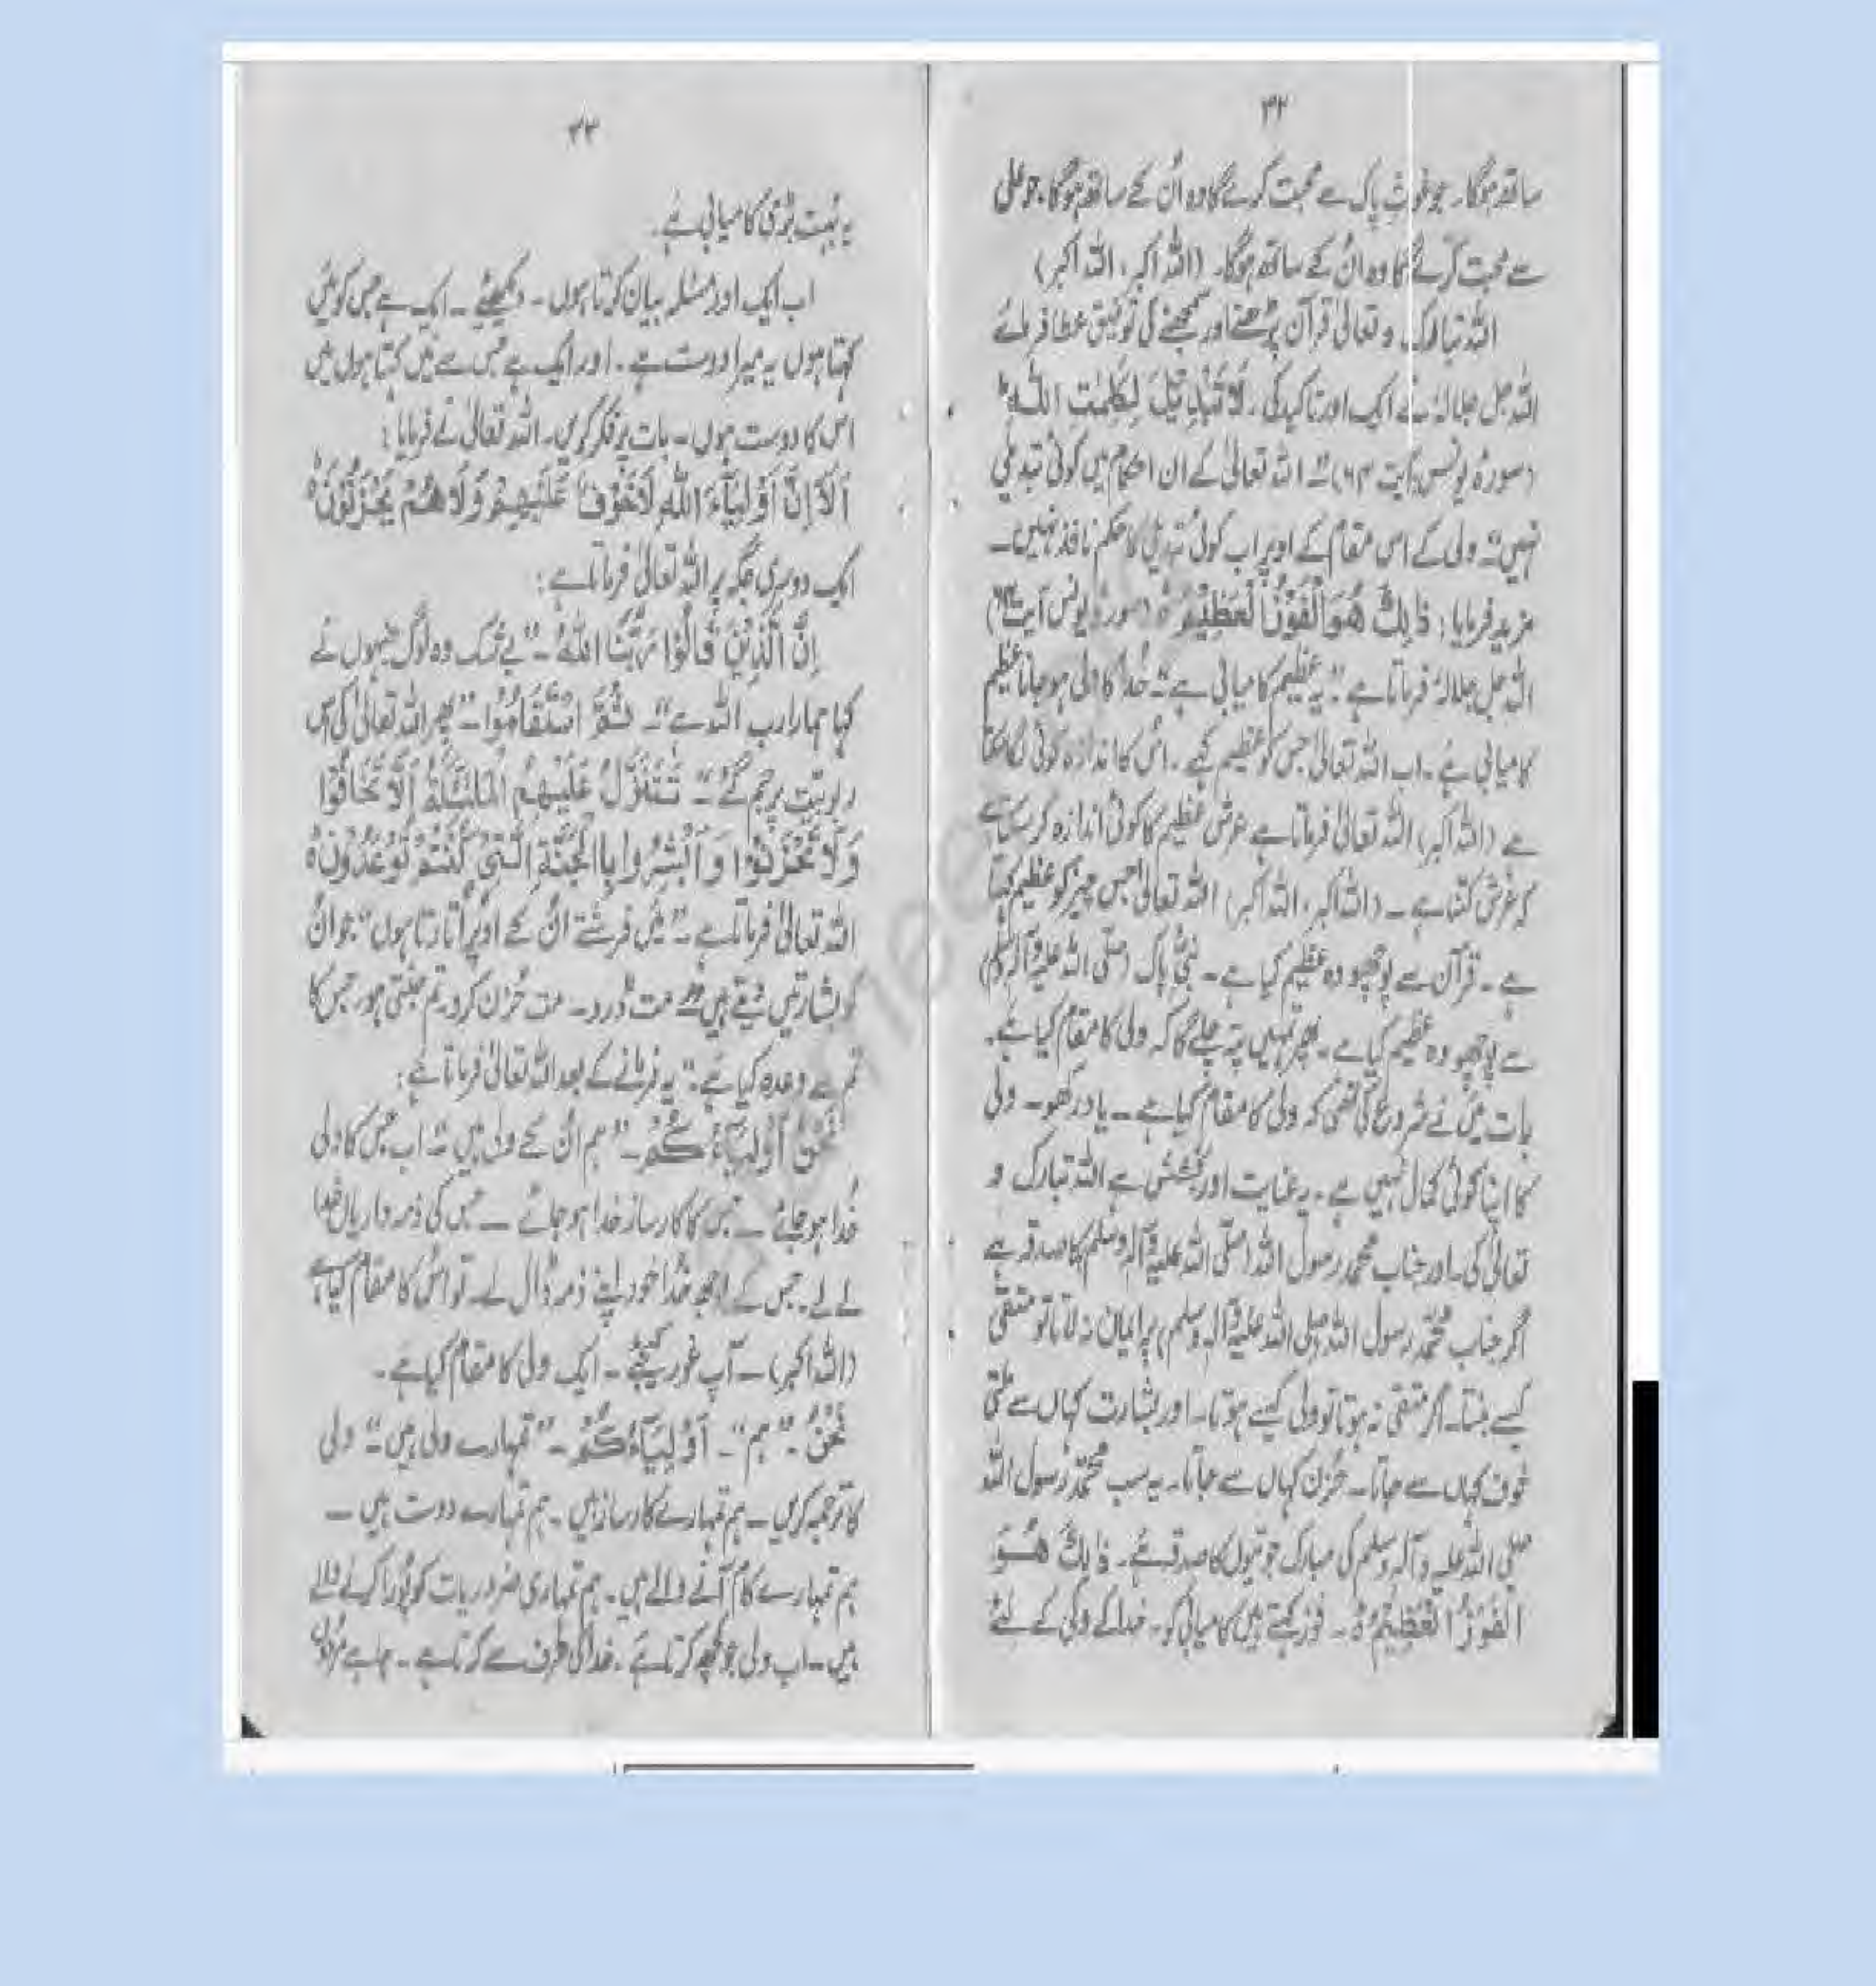 ۳۲
ساتھ ہوگا۔ جو غوثِ پاک سے محبت کرے گا وہ اُن کے ساتھ ہوگا، جو علی
سے محبت کرے گا وہ اُن کے ساتھ ہوگا۔ (اللہ اکبر، اللہ اکبر)
اللہ تبارک و تعالیٰ قرآن پڑھنے اور سمجھنے کی توفیق عطا فرمائے
اللہ جل جلالہٗ نے ایک اور تاکید کی۔ لَا تَبْدِيْلَ لِكَلِمٰتِ اللهِ ؕ
(سورہ یونس، آیت ۶۴) "اللہ تعالیٰ کے ان احکام میں کوئی تبدیلی
نہیں" ولی کے اس مقام کے اوپر اب کوئی تبدیلی کا حکم نافذ نہیں۔
مزید فرمایا: ذٰلِكَ هُوَ الْفَوْزُ الْعَظِيْمُ ۝ (سورہ یونس آیت ۶۴)
اللہ جل جلالہٗ فرماتا ہے "یہ عظیم کامیابی ہے" خُدا کا ولی ہو جانا عظیم
کامیابی ہے۔ اب اللہ تعالیٰ جس کو عظیم کہے۔ اُس کا اندازہ کوئی لگا سکتا
ہے (اللہ اکبر) اللہ تعالیٰ فرماتا ہے عرشِ عظیم کا کوئی اندازہ کر سکتا ہے
کہ عرش کتنا ہے۔ (اللہ اکبر، اللہ اکبر) اللہ تعالیٰ جس چیز کو عظیم کہتا
ہے۔ قرآن سے پوچھو وہ عظیم کیا ہے۔ نبیِّ پاک (صلّی اللہ علیہ وآلہٖ وسلم)
سے پوچھو وہ عظیم کیا ہے۔ پھر تمہیں پتہ چلے گا کہ ولی کا مقام کیا ہے۔
بات میں نے شروع کی تھی کہ ولی کا مقام کیا ہے۔ یاد رکھو۔ ولی
کا اپنا کوئی کمال نہیں ہے۔ یہ عنایت اور بخشش ہے اللہ تبارک و
تعالیٰ کی۔ اور جناب محمد رسول اللہ (صلّی اللہ علیہ وآلہ وسلم) کا صدقہ ہے
اگر جناب محمّد رسول اللہ (صلی اللہ علیہ وآلہ وسلم) پر ایمان نہ لاتا تو متقی
کیسے بنتا۔ اگر متقی نہ ہوتا تو ولی کیسے ہوتا۔ اور بشارت کہاں سے ملتی
خوف کہاں سے جاتا۔ حُزن کہاں سے جاتا۔ یہ سب محمّد رسول اللہ
صلی اللہ علیہ وآلہ وسلم کی مبارک جوتیوں کا صدقہ ہے۔ ذٰلِكَ هُوَ
الْفَوْزُ الْعَظِيْمُ ۝ ۔ فوز کہتے ہیں کامیابی کو۔ خدا کے ولی کے لئے
۳۳
یہ بُہت بڑی کامیابی ہے۔
اب ایک اور مسئلہ بیان کرتا ہوں۔ دیکھئے۔ ایک ہے جس کو میں
کہتا ہوں یہ میرا دوست ہے۔ اور ایک ہے جس سے میں کہتا ہوں میں
اس کا دوست ہوں۔ بات پر فکر کریں۔ اللہ تعالیٰ نے فرمایا:
اَلَآ اِنَّ اَوْلِيَآءَ اللهِ لَا خَوْفٌ عَلَيْهِمْ وَلَا هُمْ يَحْزَنُوْنَ ۝
ایک دوسری جگہ پر اللہ تعالیٰ فرماتا ہے:
اِنَّ الَّذِيْنَ قَالُوْا رَبُّنَا اللهُ۔ "بے شک وہ لوگ جنہوں نے
کہا ہمارا رب اللہ ہے"۔ ثُمَّ اسْتَقَامُوْا۔ "پھر اللہ تعالیٰ کی اس
ربوبیّت پر جم گئے"۔ تَتَنَزَّلُ عَلَيْهِمُ الْمَلٰٓئِكَةُ اَلَّا تَخَافُوْا
وَلَا تَحْزَنُوْا وَاَبْشِرُوْا بِاالْجَنَّةِ الَّتِيْ كُنْتُمْ تُوْعَدُوْنَ ۝
اللہ تعالیٰ فرماتا ہے۔ "میں فرشتے اُن کے اوپر اُتارتا ہوں" جو اُن
کو بشارتیں دیتے ہیں" مت ڈرو۔ مت حُزن کرو۔ تم جنتی ہو، جس کا
تم سے وعدہ کیا ہے۔" یہ فرمانے کے بعد اللہ تعالیٰ فرماتا ہے:
نَحْنُ اَوْلِيَآءُكُمْ۔ "ہم اُن کے ولی ہیں" اب جس کا ولی
خُدا ہو جائے۔ جس کا کارساز خدا ہو جائے۔ جس کی ذمہ داریاں خدا
لے لے۔ جس کے خُدا خود اپنے ذمہ ڈال لے۔ تو اُس کا مقام کیا ہے
(اللہ اکبر)۔ آپ غور کیجئے۔ ایک ولی کا مقام کیا ہے۔
نَحْنُ۔ "ہم"۔ اَوْلِيَآءُكُمْ۔ "تمہارے ولی ہیں"۔ ولی
کا ترجمہ کریں۔ ہم تمہارے کارساز ہیں۔ ہم تمہارے دوست ہیں۔
ہم تمہارے کام آنے والے ہیں۔ ہم تمہاری ضروریات کو پُورا کرنے والے
ہیں۔ اب ولی جو کچھ کرتا ہے، خدا کی طرف سے کرتا ہے۔ چاہے